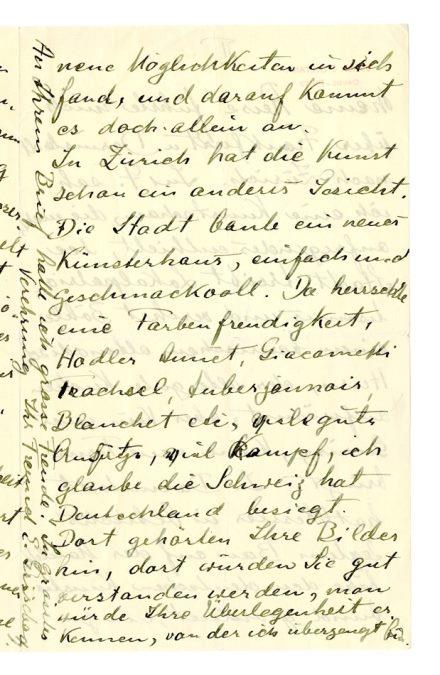 neue Möglichkeiten in sich
fand, und darauf kommt
es doch allein an.
In Zürich hat die Kunst
schon ein anderes Gesicht.
Die Stadt baute ein neues
Künsterhaus, einfach und
Geschmackvoll. Da herrschte
eine Farbenfreudigkeit,
Hodler Amiet, Giacometti
Trachsel,
Blanchet etc, viele gute
Ansätze, viel Kampf, ich
glaube die Schweiz hat
Deutschland besiegt.
Dort gehörten Ihre Bilder
hin, dort würden Sie gut
verstanden werden, man
würde Ihre Überlegenheit er
kennen, von der ich überzeugt bin.
An Ihrem Brief hatte ich grosse Freude. In grosser
Verehrung Ihr Freund E.